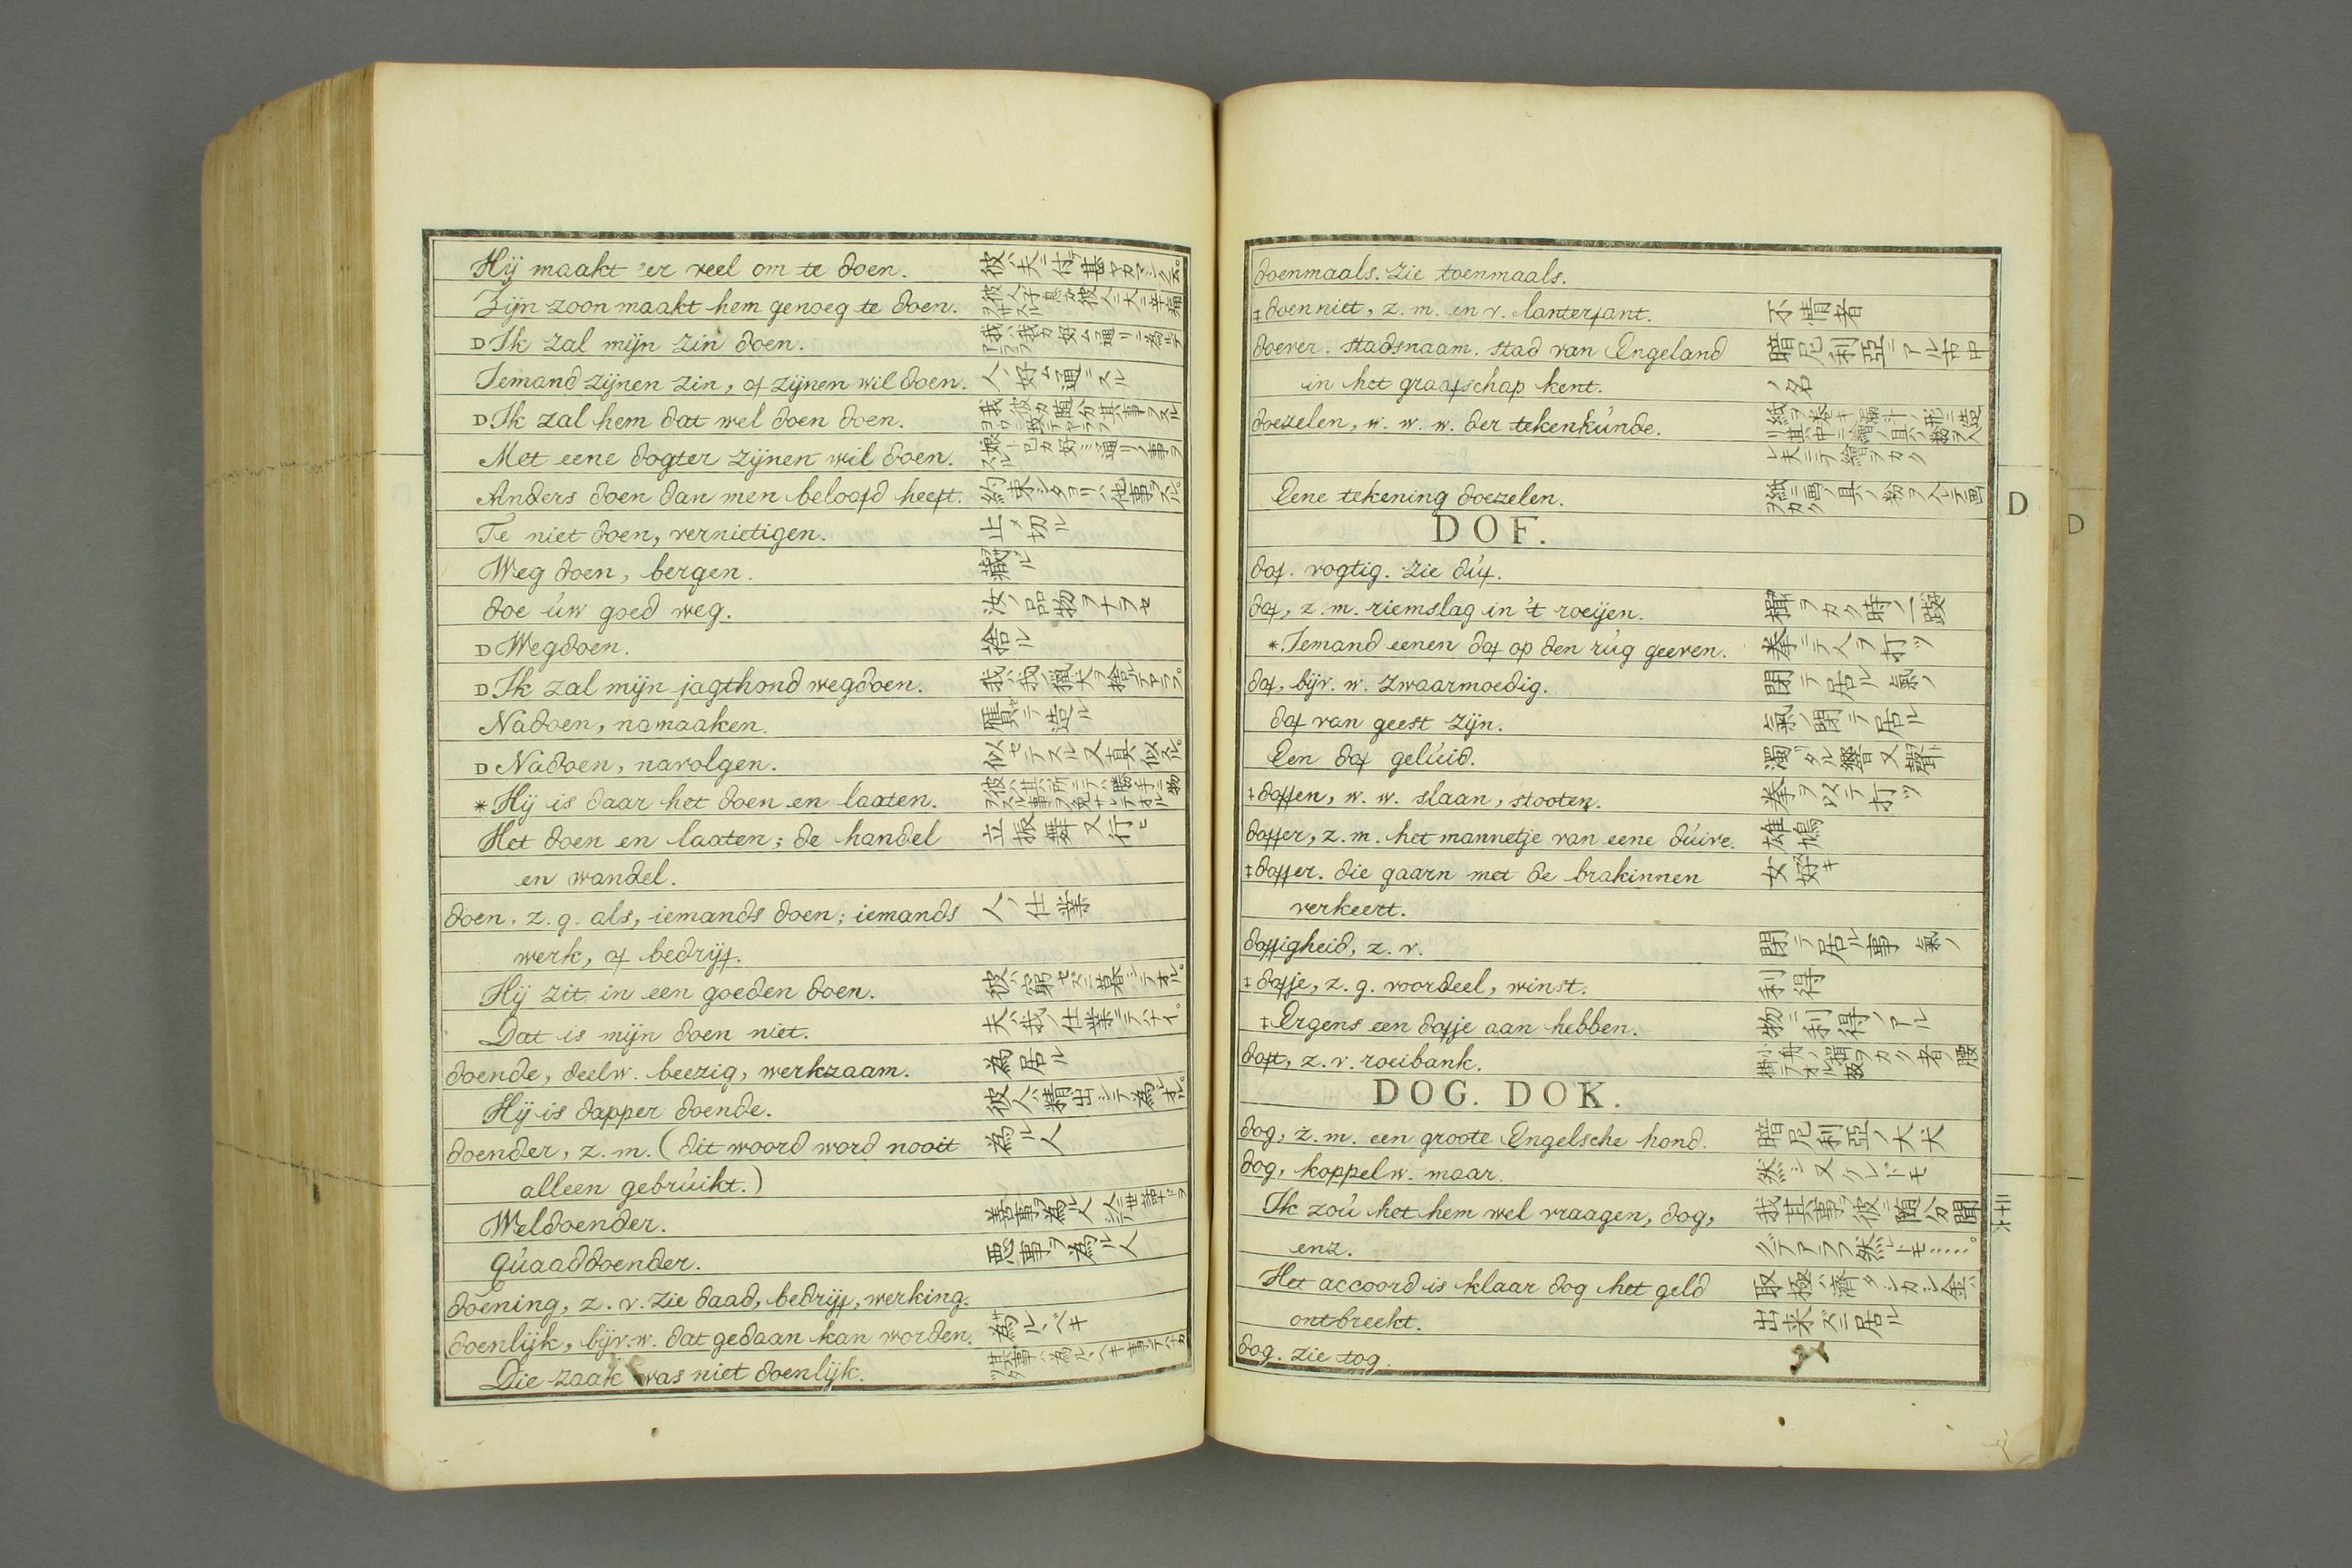 Hij maakt 'er veel om te doen. 彼ハ夫ニ付甚ヤカマシク云。
Zijn zoon maakt hem genoeg te doen. 彼人ノ子息カ彼人ニ大ニ辛福ヲサスル
D Ik zal mijn zin doen. 我ハ我カ好ム通リニ為ルデアラフ
Iemand zijnen zin, of zijnen wil doen. 人ノ好ム通ニスル
D Ik zal hem dat wel doen doen.
Met eene dogter zijnen wil doen. 娘ト己カ好ミ通リノ事ヲスル
Anders doen dan men beloofd heeft. 約束シタヨリハ他事ヲスル。
Te niet doen, vernietigen. 止メ切ル
Weg doen, bergen. 蔵ル
doe úw goed weg. 汝ノ品物ヲナヲセ
D Wegdoen. 捨ル
D Ik zal mijn jagthond wegdoen. 我ハ我ノ獵犬ヲ捨ルデアラフ。
Nadoen, namaaken. 贋セテ造ル
D Nadoen, navolgen. 似セテスル又真似スル。
* Hij is daar het doen en laaten.
Het doen en laaten; de handel 立振舞又行ヒ
en wandel.
doen. z. g. als, iemands doen; iemands 人ノ仕業
werk, of bedrijf.
Hij zit in een goeden doen. 彼ハ窮セズニ暮シテオル。
Dat is mijn doen niet. 夫ハ我ノ仕業デハナイ。
doende, deelw. beezig, werkzaam. 為居ル
Hij is dapper doende. 彼人ハ精出シテ為オル。
doender, z. m. (dit woord word nooit 為ル人
alleen gebrúikt.)
Weldoender. 善事ヲ為ル人
Qúaaddoender. 悪事ヲ為ル人
doening, z. v. zie daad, bedrijf, werking.
doenlijk, bijv. w. dat gedaan kan worden. 為ルベキ
Die zaak was niet doenlijk. 其事ハ為ルベキ事デハナカツタ
doenmaals. zie toenmaals.
‡ doenniet, z. m. en v. lanterfant. 不情者
doever. stadsnaam. stad van Engeland 暗厄利亞ニアル市中
in het graafschap kent. ノ名
doezelen, w. w. w. der tekenkúnde.
Eene tekening doezelen. 紙ニ画ノ具ノ粉ヲ入レテ画ヲカク
D
D
DOF.
dof. vogtig. zie dúf.
dof, z. m. riemslag in 't roeijen. 櫂ヲカク時ノ一撥
* Iemand eenen dof op den rúg geeven. 拳ニテ人ヲ打ツ
dof, bijv. w. zwaarmoedig. 閉テ居ル氣ノ
dof van geest zijn. 氣ノ閉テ居ル
Een dof gelúid. 濁タル響又聲
‡ doffen, w. w. slaan, stooten. 拳ヲ以テ打ツ
doffer, z. m. het mannetje van eene dúive. 雄鳩
‡ doffer. die gaarn met de brakinnen 女好キ
verkeert.
doffigheid, z. v. 閉テ居ル事 氣ノ
‡ dofje, z. g. voordeel, winst. 利得
‡ Ergens een dofje aan hebben. 物ニ利得ノアル
doft, z. v. roeibank.
DOG. DOK.
dog, z. m. een groote Engelsche hond. 暗厄利亞ノ大犬
dog, koppelw. maar. 然シ又ケレドモ
Ik zoú het hem wel vraagen, dog, 我其事ヲ彼ニ随分聞
enz. グデアラフ然レドモ……。
Het accoord is klaar dog het geld 取極ハ濟タシカシ金ハ
ontbreekt. 出来ズニ居ル
dog. zie tog.